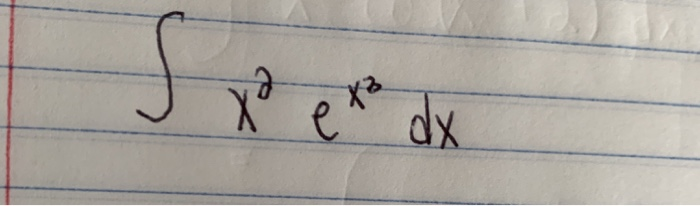 ∫ x² e^{x³} dx